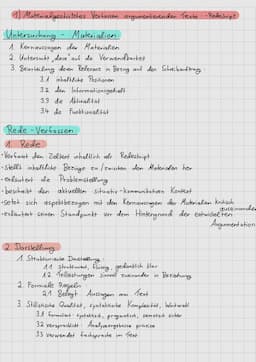 1) Materialgestütztes Verfassen argumentierender Texte - Redeskript
Untersuchung - Materialien
1. Kernaussagen der Materialien
2. Untersucht „diese" auf die Verwendbarkeit
3. Beurteilung deren Relevanz in Bezug auf den Schreibauftrag:
3.1 inhaltliche Positionen
3.2 den Informationsgehalt
3.3 die Aktualität
3.4 die Funktionalität
Rede - Verfassen
1. Rede
- Verfasst den Zieltext inhaltlich als Redeskript
- stellt inhaltliche Bezüge zu/zwischen den Materialien her
- erläutert die Problemstellung
- beschreibt den aktuellen situativ-kommunikativen Kontext
- setzt sich aspektbezogen mit den Kernaussagen der Materialien kritisch auseinander
- erläutert seinen Standpunkt vor dem Hintergrund der entwickelten Argumentation
2. Darstellung
1. Strukturierte Darstellung:
1.1 strukturiert, flüssig, gedanklich klar
1.2 Teilleistungen sinnvoll zueinander in Beziehung
2. Formale Regeln
2.1 Belegt Aussagen am Text
3. Stilistische Qualität, syntaktische Komplexität, Wortwahl
3.1 formuliert: syntaktisch, pragmatisch, semantisch sicher
3.2 Analyseergebnisse präzise
3.3 verwendet Fachsprache im Text